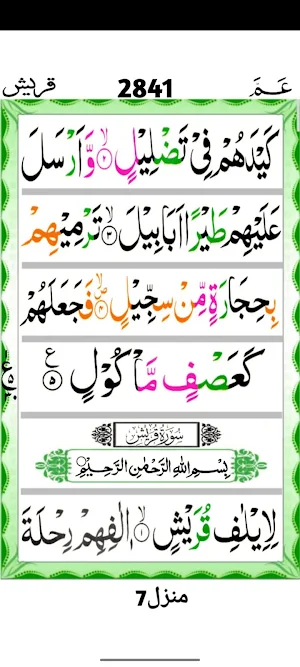 عَمَّ 2841 قريش
كَيۡدَهُمۡ فِىۡ تَضۡلِيۡلٍۙ‏﴿۲﴾ وَّاَرۡسَلَ
عَلَيۡهِمۡ طَيۡرًا اَبَابِيۡلَۙ‏﴿۳﴾ تَرۡمِيۡهِمۡ
بِحِجَارَةٍ مِّنۡ سِجِّيۡلٍۙ‏﴿۴﴾ فَجَعَلَهُمۡ
كَعَصۡفٍ مَّاۡكُوۡلٍ‏﴿۵﴾ ع
سُوۡرَةُ قُرَيۡشٍ
بِسۡمِ اللهِ الرَّحۡمٰنِ الرَّحِيۡمِ
لِاِيۡلٰفِ قُرَيۡشٍۙ‏﴿۱﴾ اٖلٰفِهِمۡ رِحۡلَةَ
منزل7